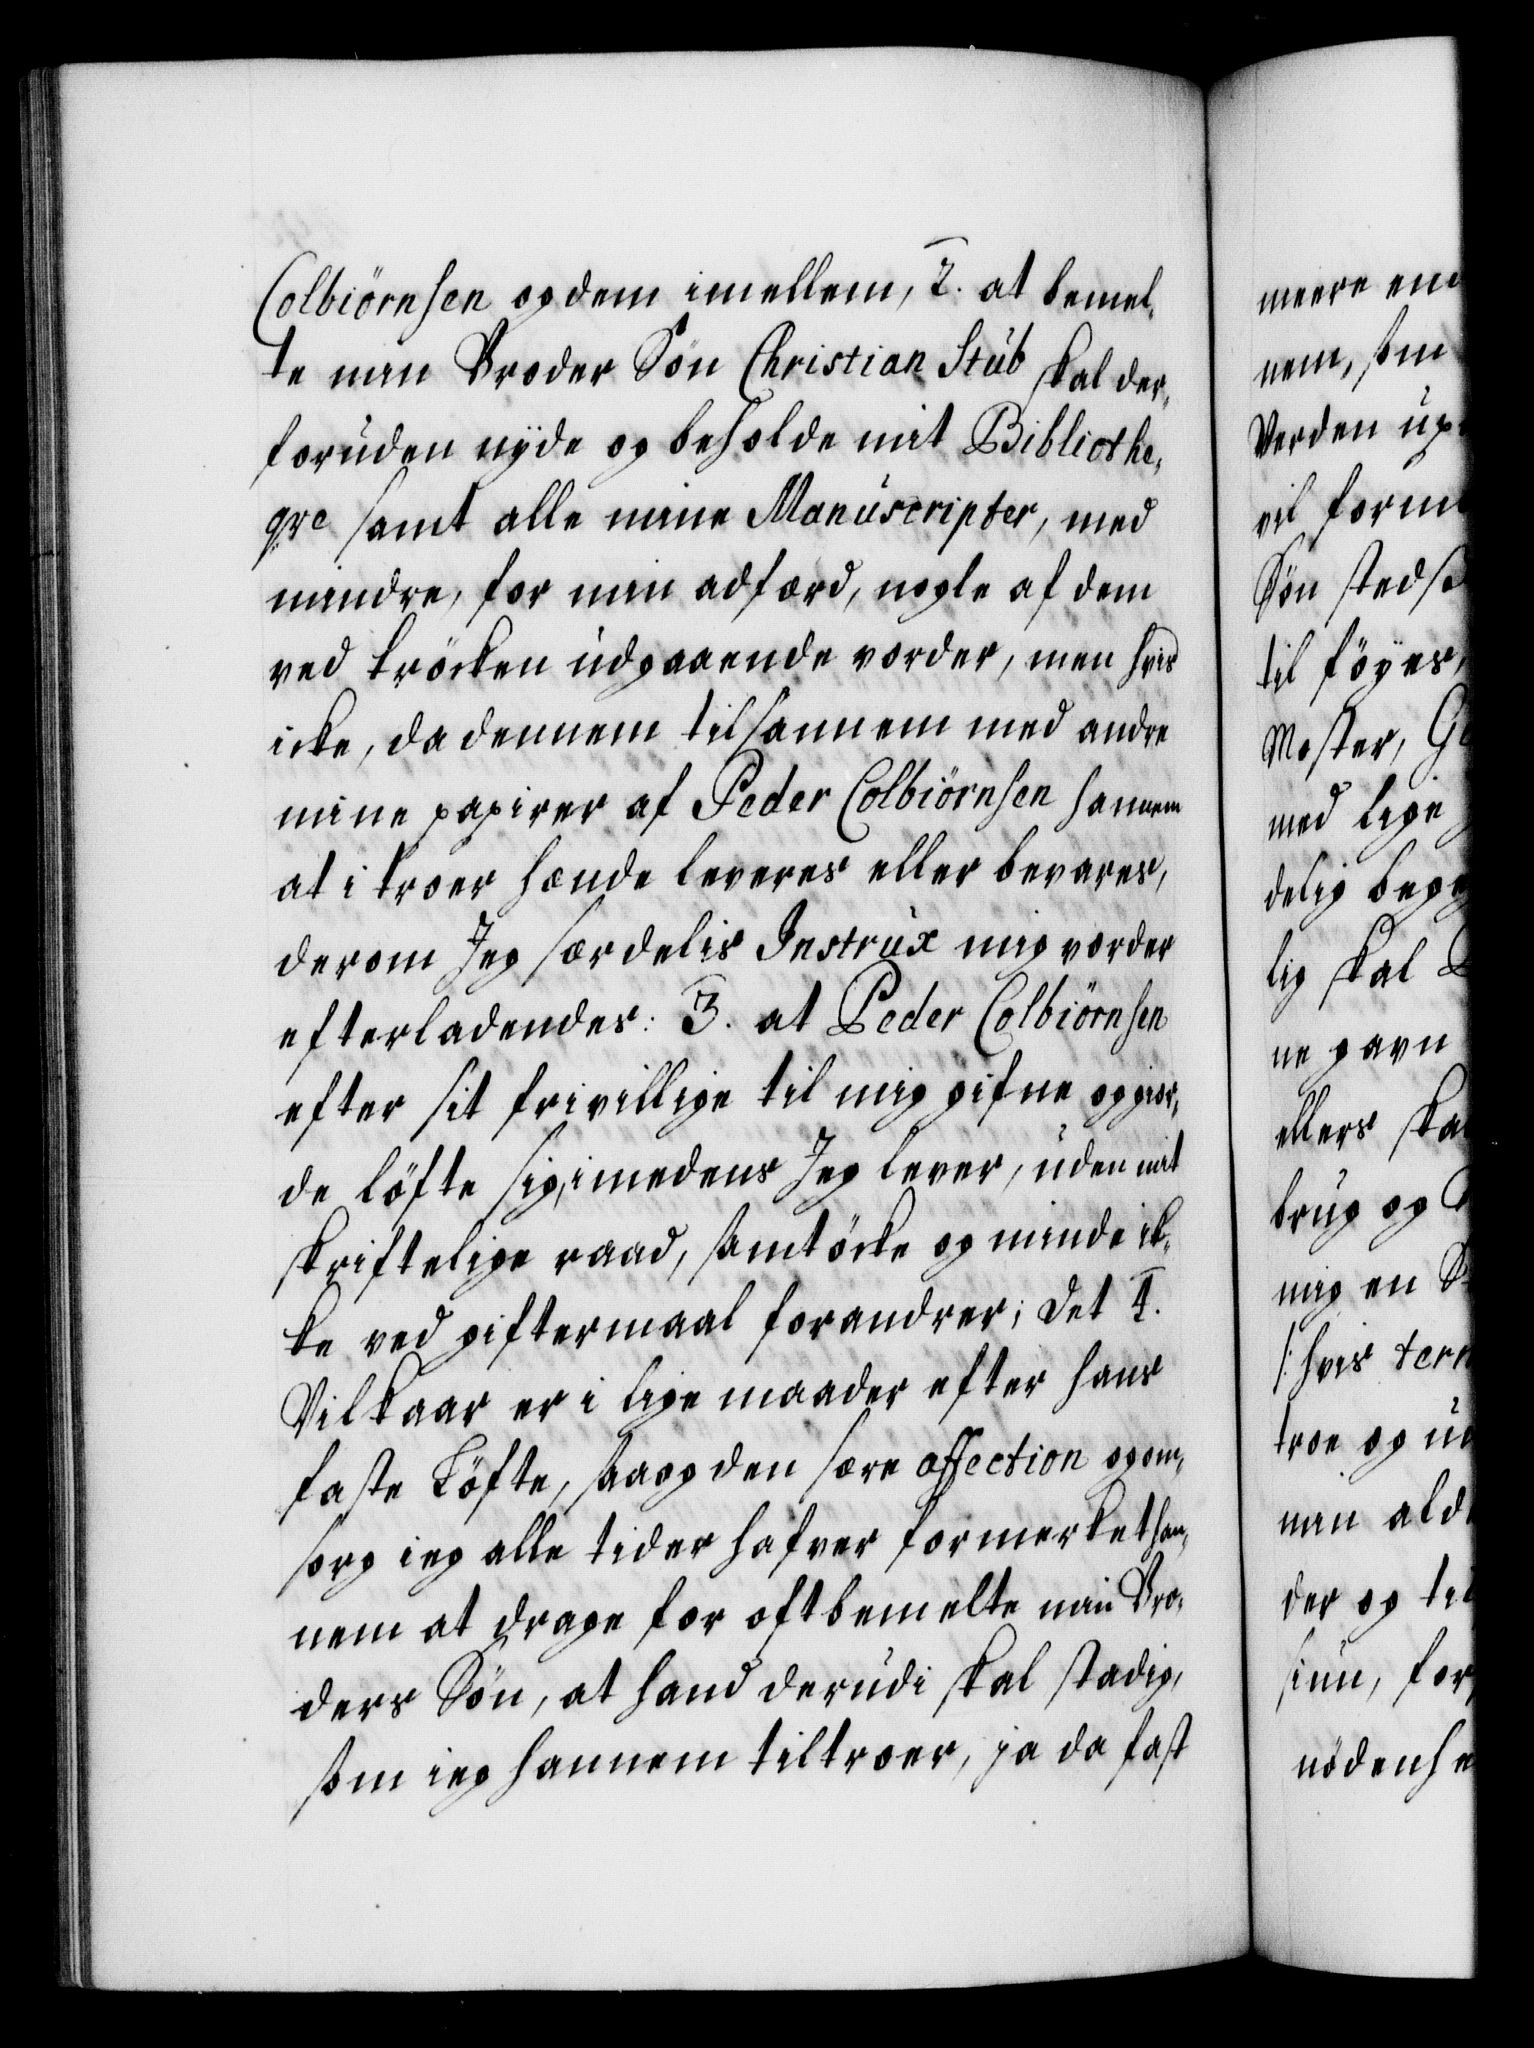 Colbiørnsen og dem imellem, 2. at bemel,
te min Broder Søn Christian Stub skal der,
foruden nyde og beholde mit Bibliothe,
qve samt alle mine Manuscripter, med
mindre, for min adfærd, nogle af dem
ved trøcken udgaaende vorder, men hvis
icke, da dennem tilsammen med andre
mine papirer af Peder Colbiørnsen hannem
at i troer hænde leveres eller bevares,
derom Jeg særdelis Instrux mig vorder
efterladendes: 3. at Peder Colbiørnsen
efter sit frivillige til mig gifne og gior,
de løfte sig, imedens Jeg lever, uden mit
skriftelige raad, samtøcke og minde ik,
ke ved giftermaal forandrer; Det 4.
Vilkaar er i lige maader efter hans
faste Løfte, saa og den sære affection og om,
sorg ieg alle tider hafver formerket han,
nem at drage for oftbemelte min Bro,
ders Søn, at hand derudi skal stadig,
som ieg hannem tiltroer, ja da fast
meere en
nem, som
Verden up
vil form
Søn steds
til føyes,
Moster, Gl
med lige
delig beg
lig skal
ne gavn
ellers ska
brug og
mig en
/: hvis ter
troe og u
min ald
der og til
sinn, for
nødenhe